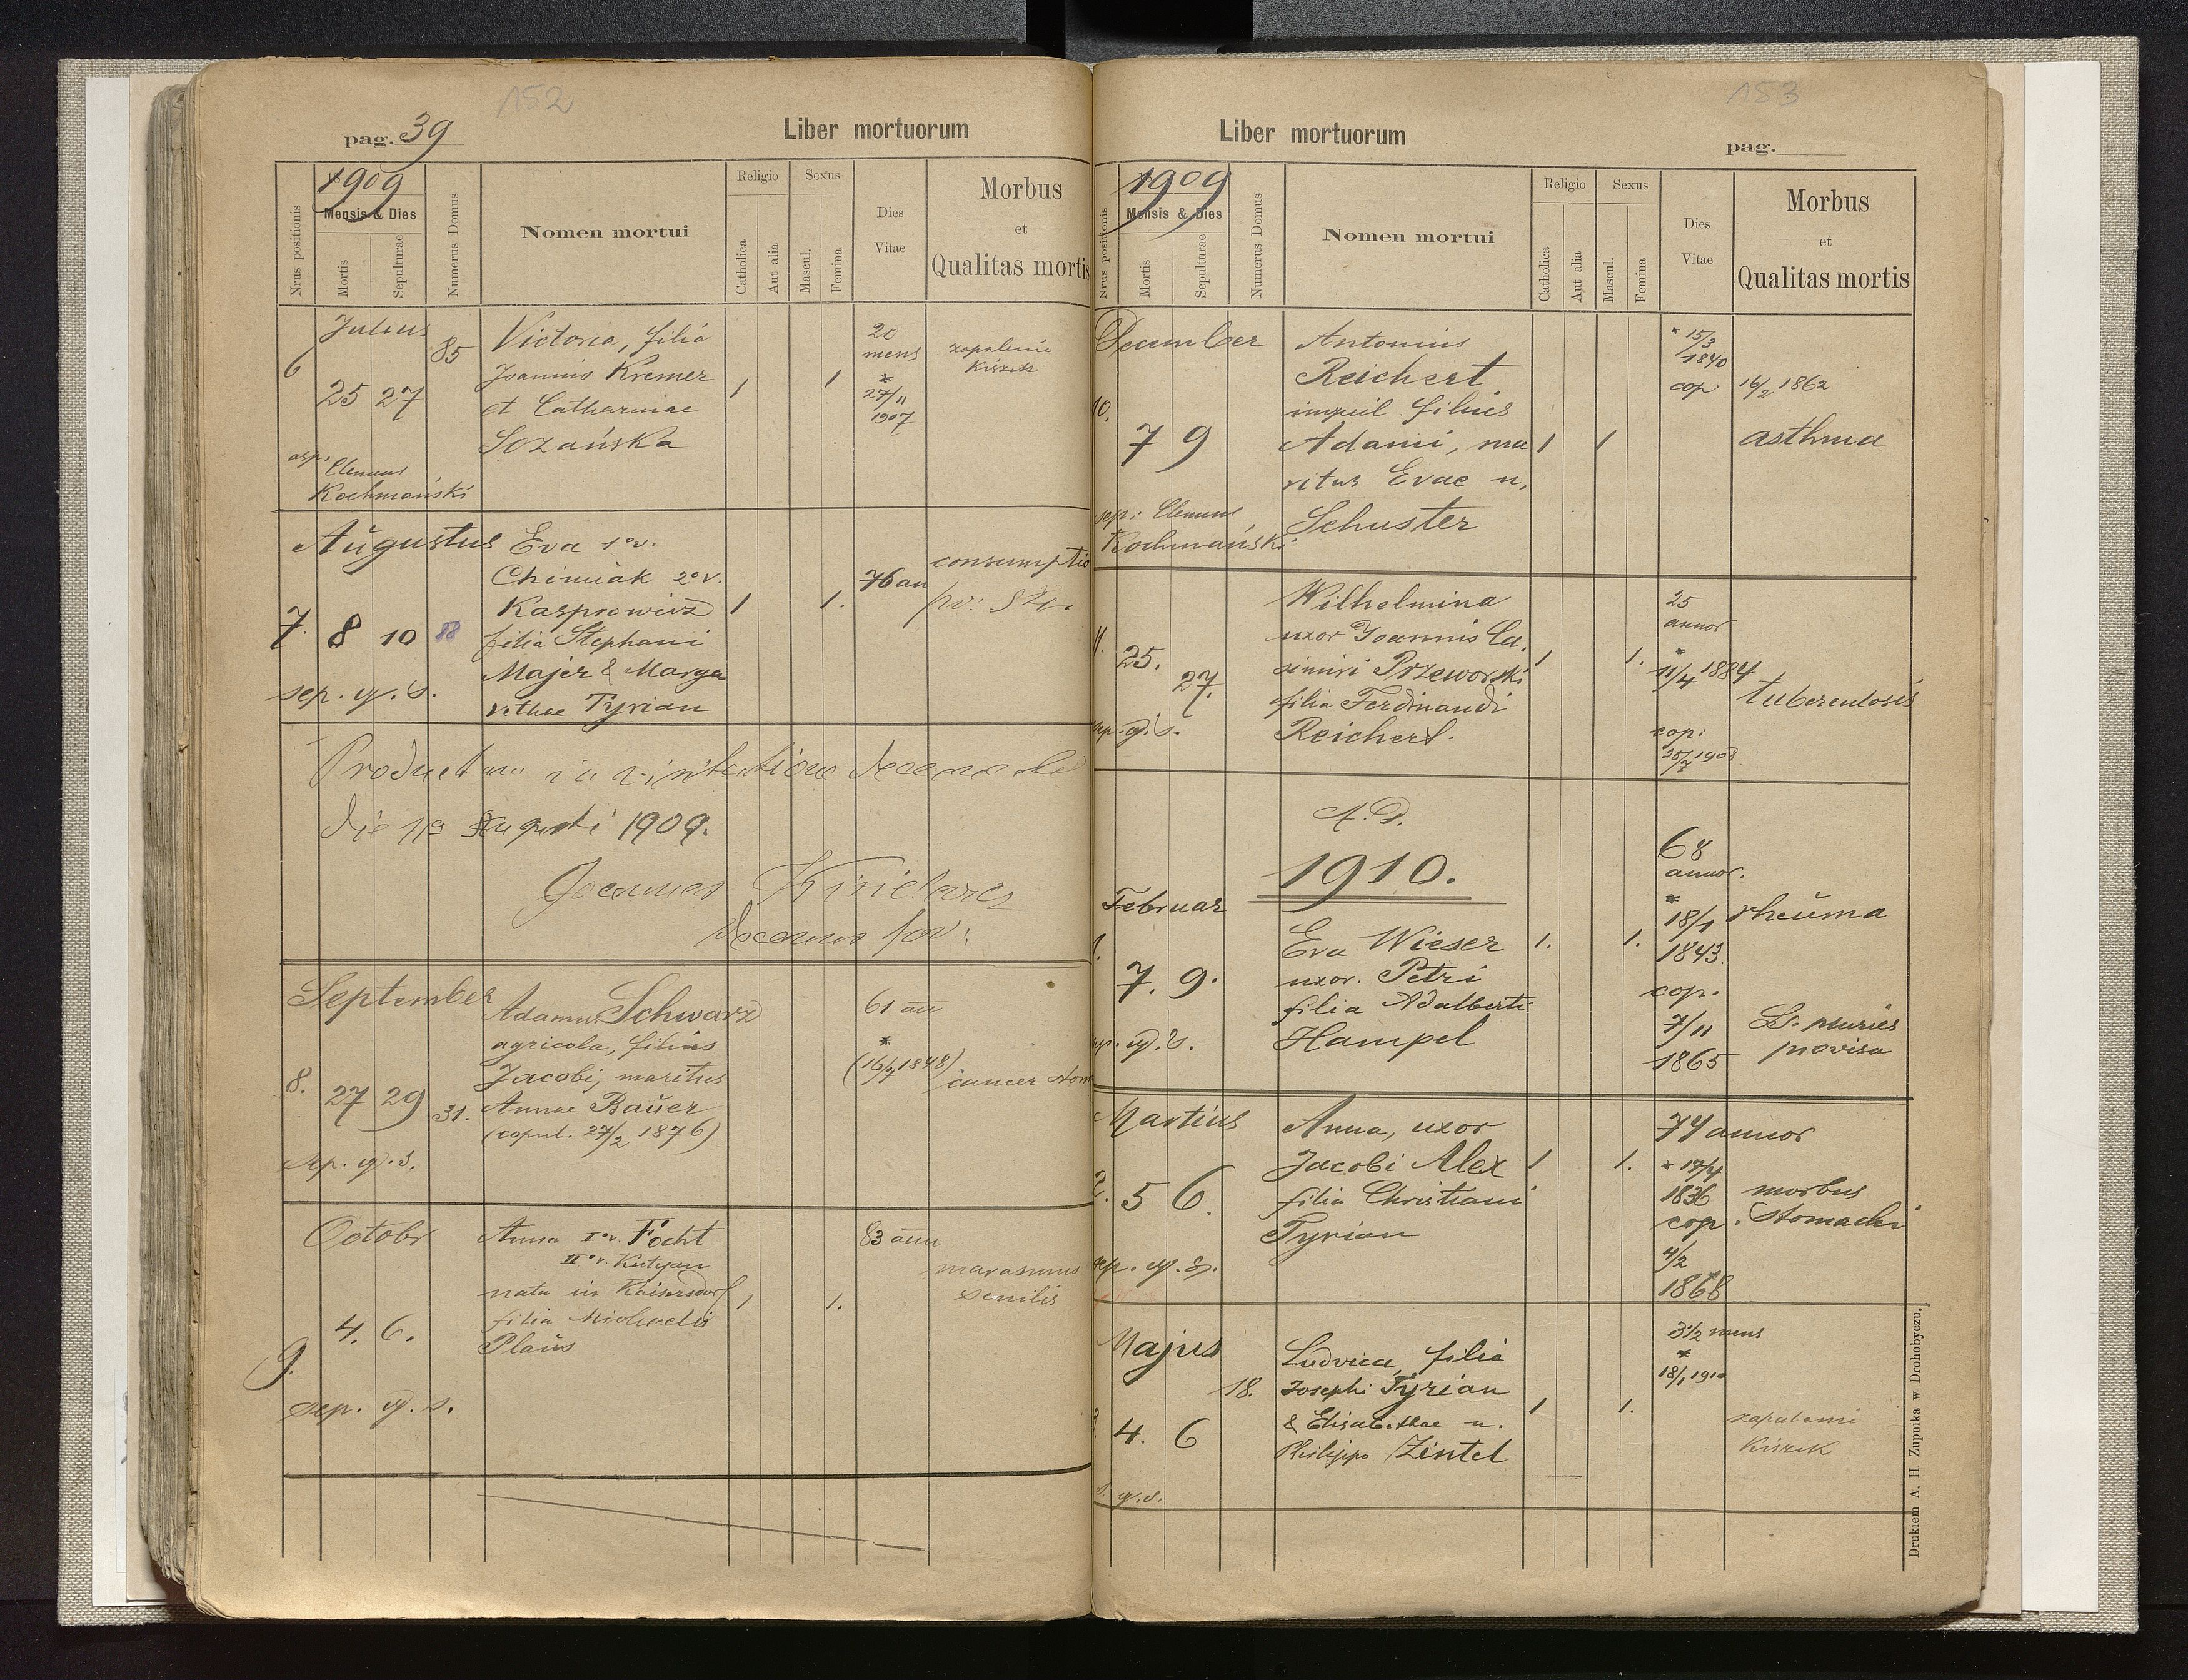 152
pag. 39
Liber mortuorum
1909
Nrus positionis
Mensis & Dies
Mortis
Sepulturae
Numerus Domus
Nomen mortui
Religio
Catholica
Aut alia
Sexus
Mascul.
Femina
Dies
Vitae
Morbus
et
Qualitas mortis
Julius
6
25 27
85
Victoria, filia
Joannis Kremer
et Catharinae
Sozańska
1
1
20
mens
*
27/11
1907
zapalenie
Kiszek
Clemens
Kochmański
Augustus
7.
8 10
88
Eva 1o v.
Chimiak 2o v.
Kasprowicz
filia Stephani
Majer & Marga
rethae Tyrian
1
1.
76 an
consumptio
sep. q. s.
Productum in visitatione decanali
die 11a Augusti 1909.
Joannes
Decanus for:
September
8.
27 29
31.
Adamus Schwarz
agricola, filius
Jacobi, maritus
Annae Bauer
(copul. 27/2 1876)
61 an
*
(16/7 1848)
cancer stom
sep. q. s.
Octobr
9.
4. 6.
Anna Io v. Focht
IIo v. Kutyan
nata in Kaisersdorf
filia Michaelis
Plaus
1
1.
83 ann
marasmus
senilis
sep. q. s.
153
Liber mortuorum
pag.
1909
Nrus positionis
Mensis & Dies
Mortis
Sepulturae
Numerus Domus
Nomen mortui
Religio
Catholica
Aut alia
Sexus
Mascul.
Femina
Dies
Vitae
Morbus
et
Qualitas mortis
December
10.
7 9
Antonius
Reichert
inquil. filius
Adami, ma
ritus Evae n.
Schuster
1
1
* 15/3
1840
cop. 16/2 1862
asthma
sep: Clemens
Kochmański
11.
25.
27.
Wilhelmina
uxor Joannis Ca.
simiri Przeworski
filia Ferdinandi
Reichert.
1
1.
25
annor
*
11/4 1884
cop:
25/7 1908
tuberculosis
sep. q. s.
A. D.
1910.
Februar
1.
7. 9.
Eva Wieser
uxor. Petri
filia Adalberti
Hampel
1.
1.
68
annor.
*
18/1
1843.
cop.
7/11
1865
rheuma
S. pluries
provisa
sep. q. s.
Martius
2.
5 6.
Anna, uxor
Jacobi Alex
filia Christiani
Tyrian
1
1.
74 annor
* 17/4
1836
cop.
4/2
1868
morbus
stomachi
sep. q. s.
Majus
4. 6
18.
Ludvica, filia
Josephi Tyrian
& Elisabethae n.
Philippo Zintel
1
1.
3 1/2 mens
*
18/1 1910
zapaleni
Kiszek
s. q. s.
Drukiem A. H. Zupnika w Drohobyczu.